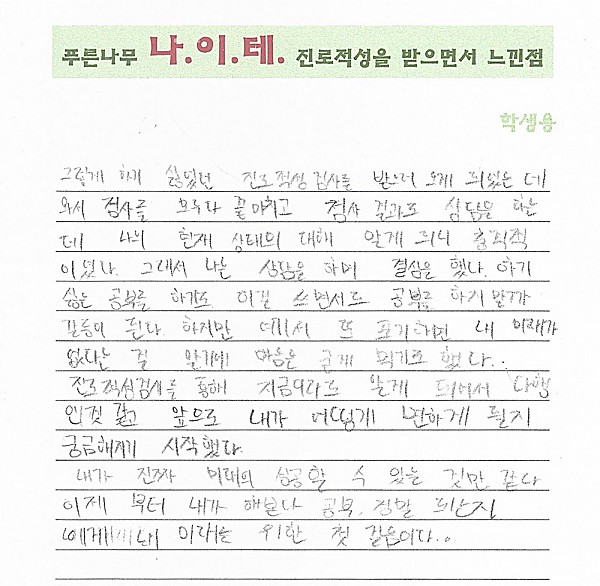 푸른나무 나.이.테. 진로적성을 받으면서 느낀점
학생용
그렇게 하기 싫었던 진로적성검사를 받으러 오게 되었는데
와서 검사를 모두 다 끝마치고 검사 결과로 상담을 하는
데 나의 현재 상태의 대해 알게 되니 충격적
이었다. 그래서 나는 상담을 하며 결심을 했다. 하기
싫은 공부를 하기도 이길 쓰면서도 공부를 하게 말까
갈등이 된다. 하지만 여기서 또 포기하면 내 미래가
없다는 걸 알기에 마음은 굳게 먹기로 했다..
진로적성검사를 통해 지금이라도 알게 되어서 다행
인것 같고 앞으로 내가 어떻게 변하게 될지
궁금해지기 시작했다.
내가 진짜 미래의 성공할 수 있을 것만 같다
이제 부터 내가 해본다 공부. 정말 되는지
내 미래를 위한 첫 걸음이다..